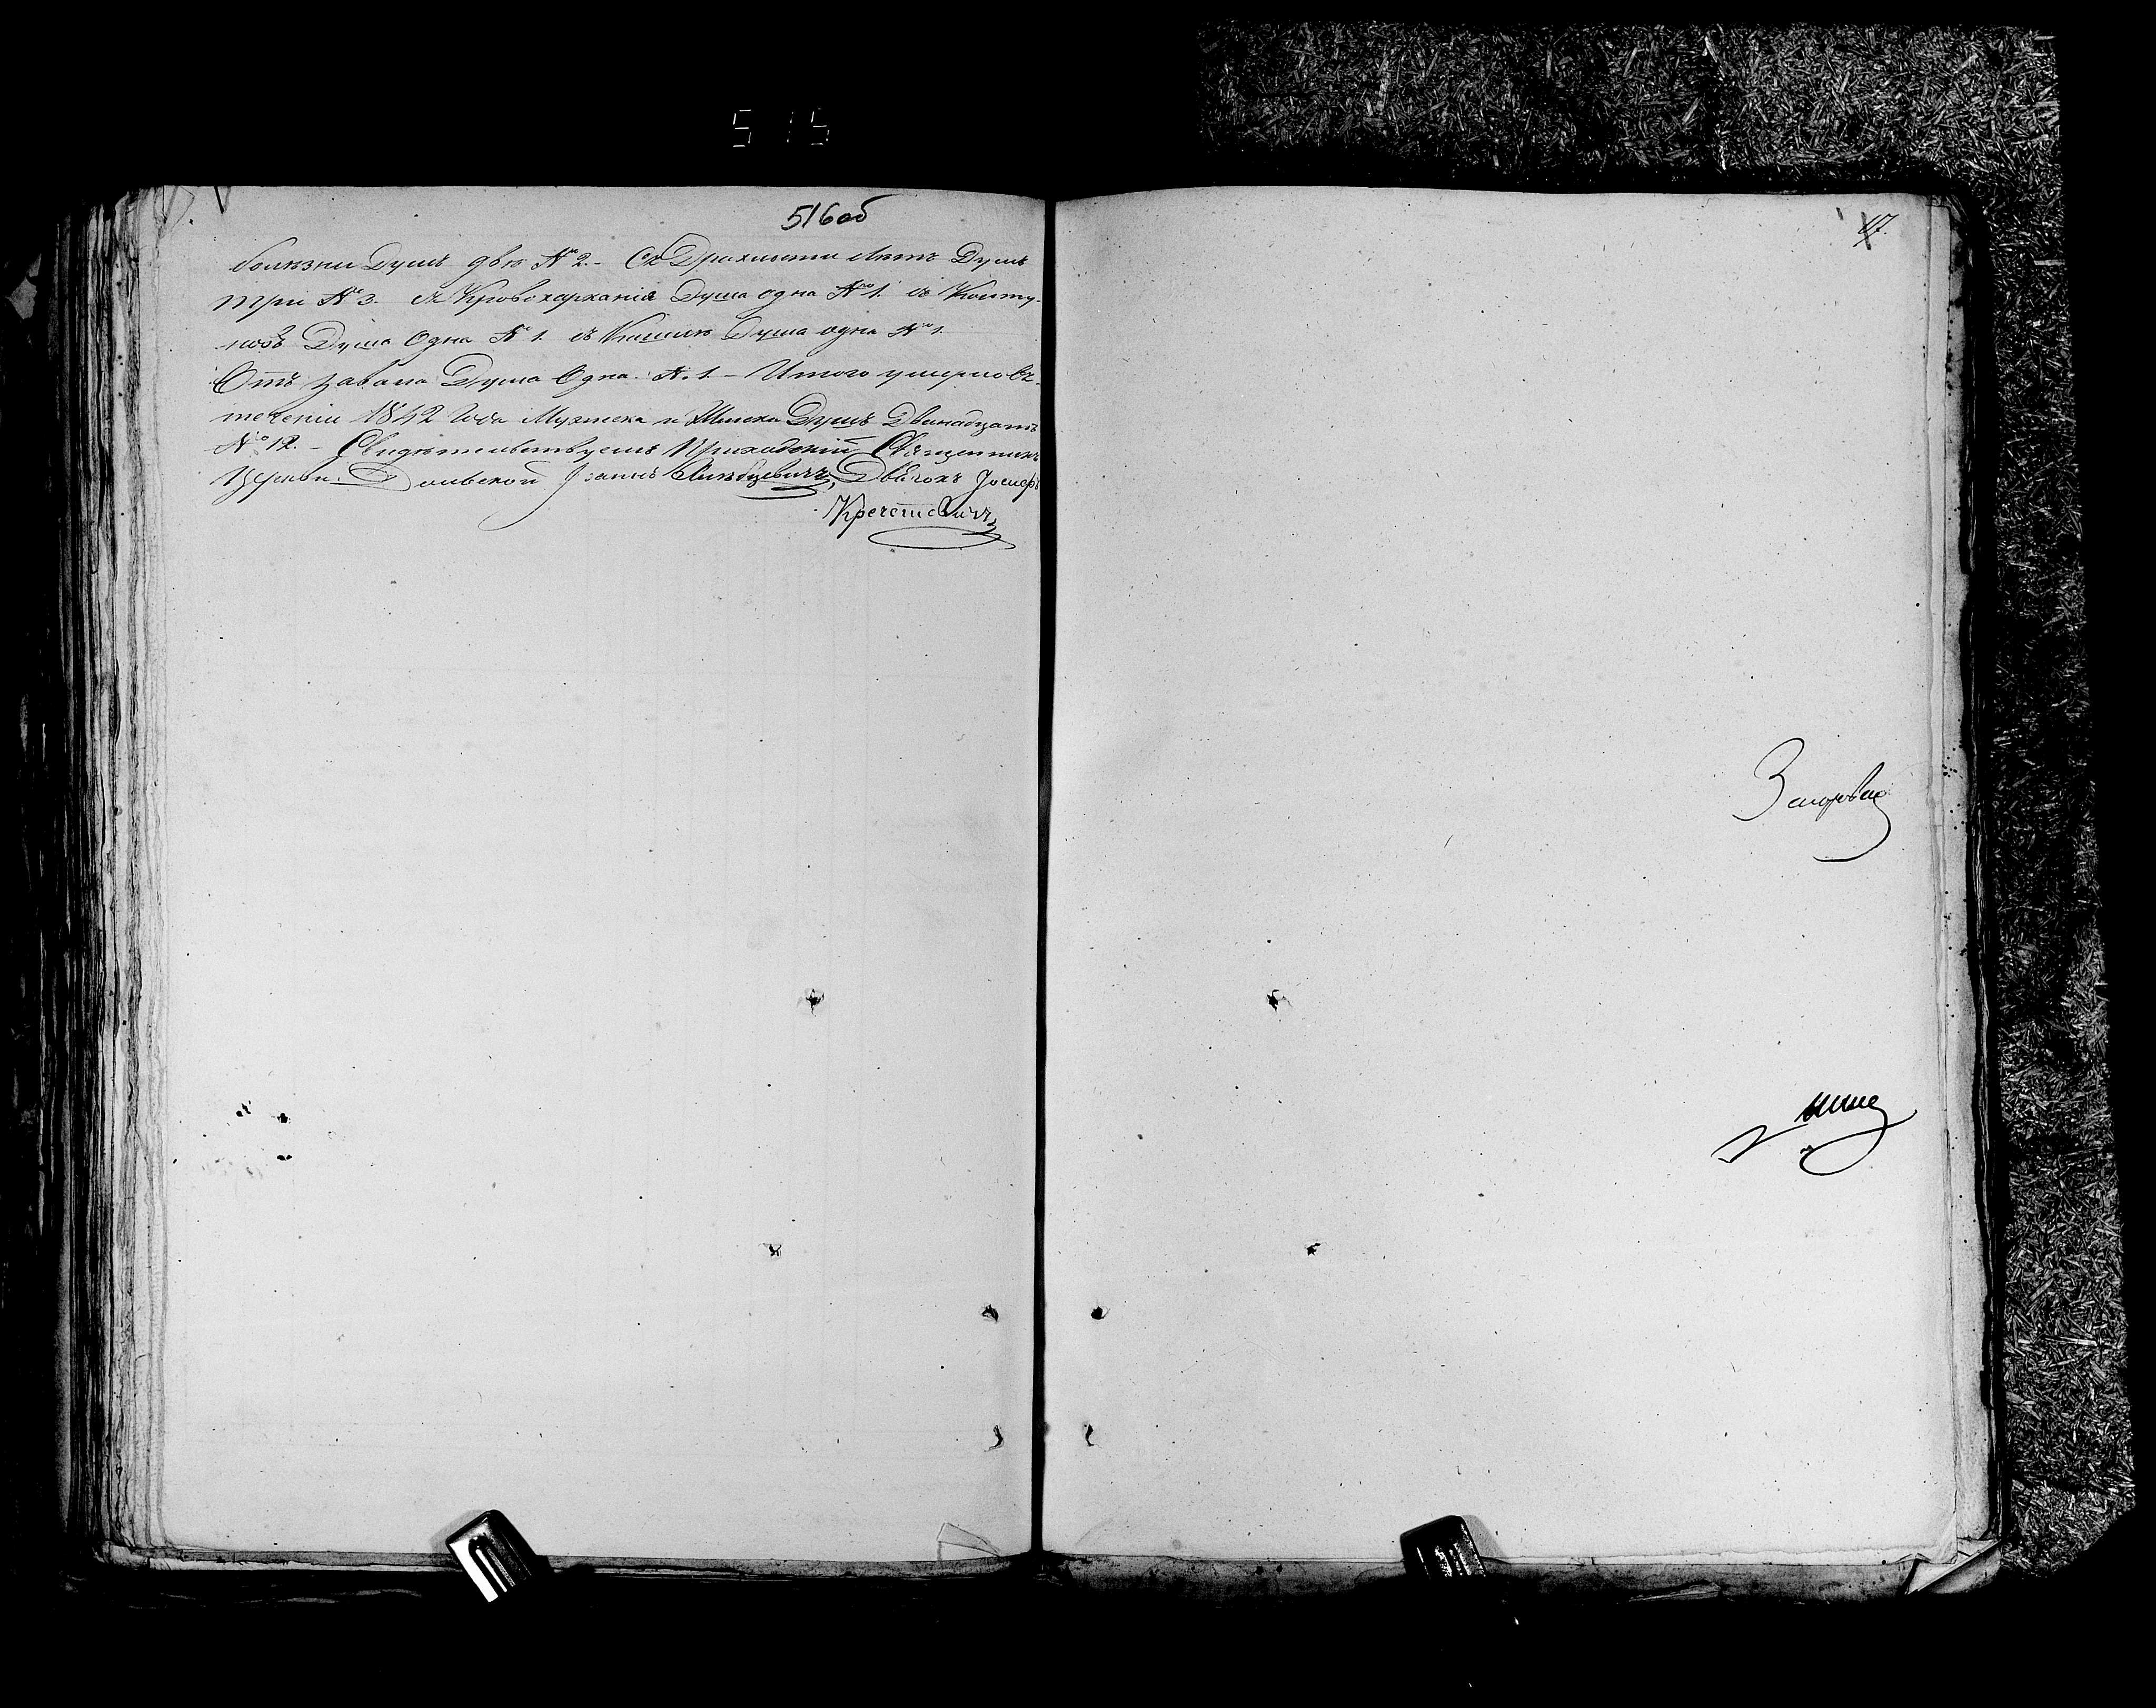 515
516об
болѣзни Душъ двѣ № 2. - Съ Дряхлости лѣтъ Душъ
три № 3. съ Кровохарканія Душа одна № 1. съ Колту-
новъ Душа Одна № 1. съ Кашлю Душа одна № 1.
Отъ завала Душа Одна. № 1. - Итого умерло въ
теченіи 1842 Года Мужеска и Женска Душъ Двенадцать
№ 12. - Свидѣтельствуемъ Приходскій Священникъ
Церкви Іоаннъ Дьячокъ Іосифъ
17.